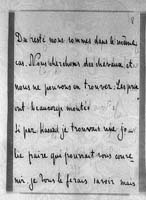 Du reste nous sommes dans le même
cas. Nous cherchons des chevaux et
nous ne pouvons en trouver. Les prix
ont beaucoup montés
Si par hasard je trouvais une jo-
lie paire qui pourrait vous conve
nir je vous le ferais savoir mais